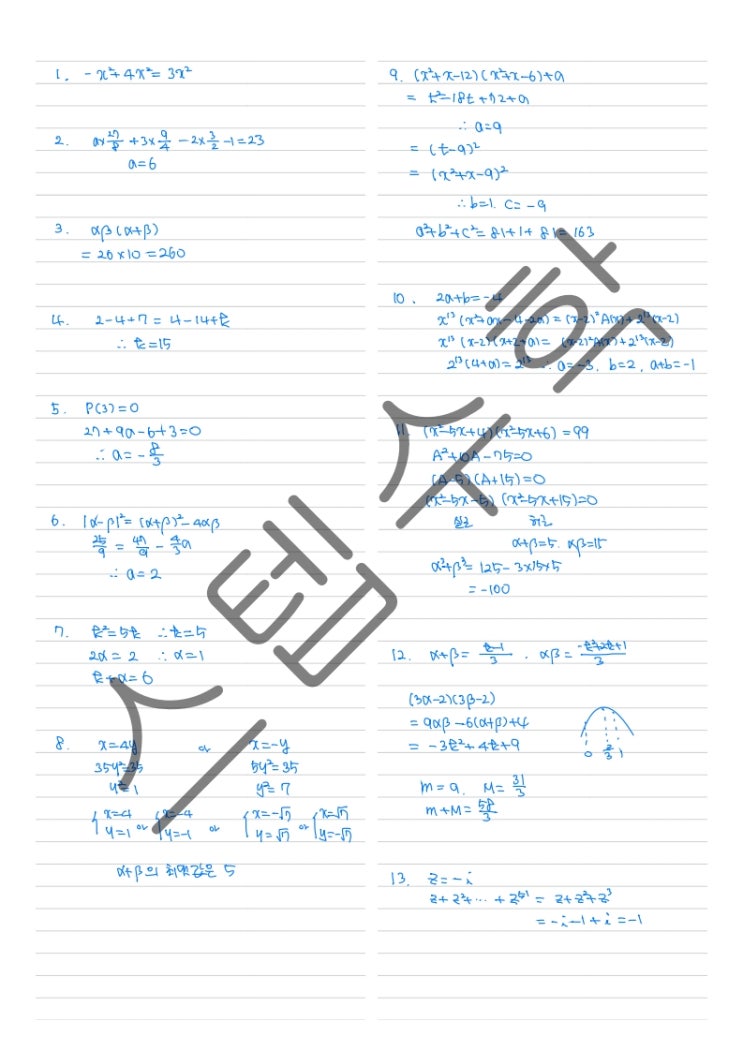 1. -x²+4x²=3x²
2. a×27/8+3×9/4-2×3/2-1=23
a=6
3. αβ(α+β)
=26×10=260
4. 2-4+7=4-14+k
∴ k=15
5. P(3)=0
27+9a-6+3=0
∴ a=-8/3
6. |α-β|²=(α+β)²-4αβ
25/9=49/9-4/3a
∴ a=2
7. k²=5k ∴k=5
2α=2 ∴α=1
k+α=6
8. x=4y or x=-y
35y²=35 5y²=35
y²=1 y²=7
{x=4 y=1 or {x=-4 y=-1 or {x=-√7 y=√7 or {x=√7 y=-√7
α+β의 최댓값은 5
9. (x²+x-12)(x²+x-6)+a
= t²-18t+72+a
∴ a=9
= (t-9)²
= (x²+x-9)²
∴ b=1. c=-9
a²+b²+c²=81+1+81=163
10. 2a+b=-4
x¹³(x²+ax-4-2a)=(x-2)²A(x)+2¹³(x-2)
x¹³(x-2)(x+2+a)=(x-2)²A(x)+2¹³(x-2)
2¹³(4+a)=2¹³ ∴ a=-3, b=2, a+b=-1
11. (x²-5x+4)(x²-5x+6)=99
A²+10A-75=0
(A-5)(A+15)=0
(x²-5x-5)(x²-5x+15)=0
실근 허근
α+β=5. αβ=15
α³+β³=125-3×15×5
=-100
12. α+β=k-1/3 . αβ=-k²+2k+1/3
(3α-2)(3β-2)
=9αβ-6(α+β)+4
=-3k²+4k+9
0 2/3 1
m=9. M=31/3
m+M=58/3
13. z=-i
z+z²+⋯+z⁵¹=z+z²+z³
=-i-1+i=-1
스텝수학